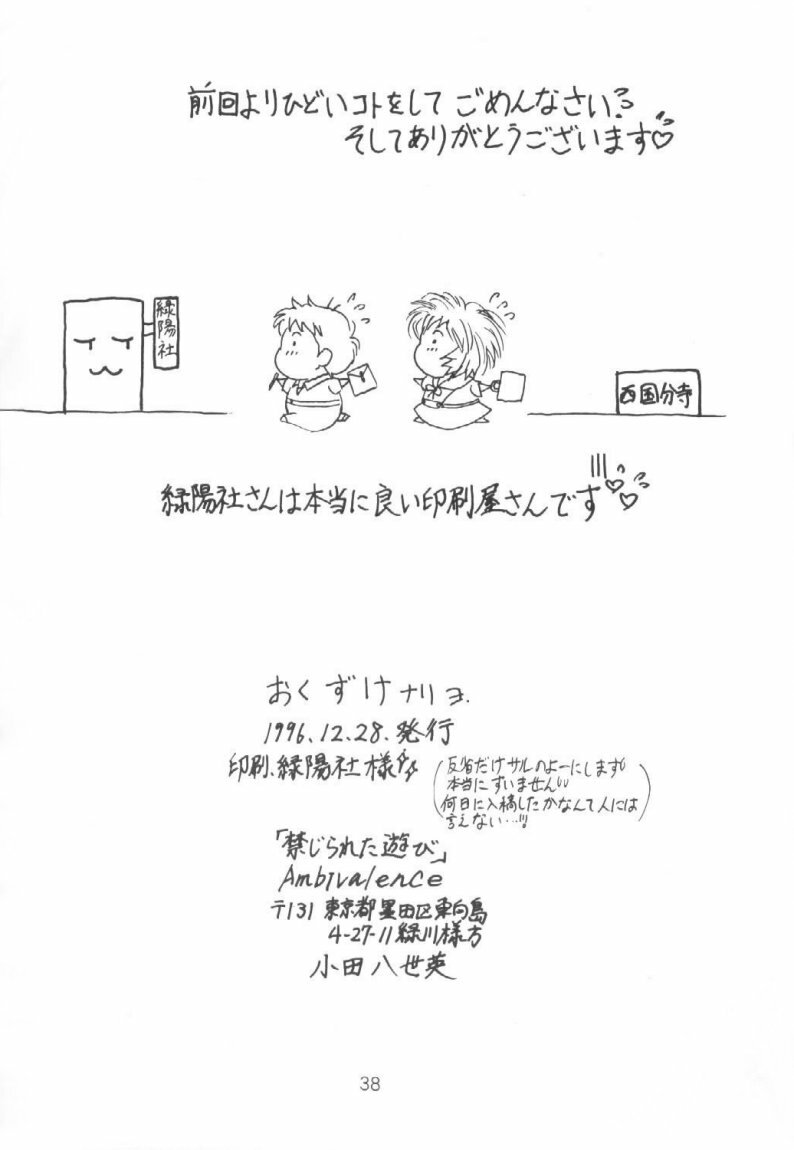 前回よりひどいコトをして ごめんなさい?
そしてありがとうございます♡
緑陽社
西国分寺
緑陽社さんは本当に良い印刷屋さんです!!!♡♡
おくずけナリヨ.
1996.12.28.発行
印刷、緑陽社様
(反省だけサルのよーにします
本当にすいません
何日に入稿したかなんて人には
言えない…!!)
「禁じられた遊び」
Ambivalence
〒131 東京都墨田区東向島
4-27-11 緑川様方
小田八世英
38